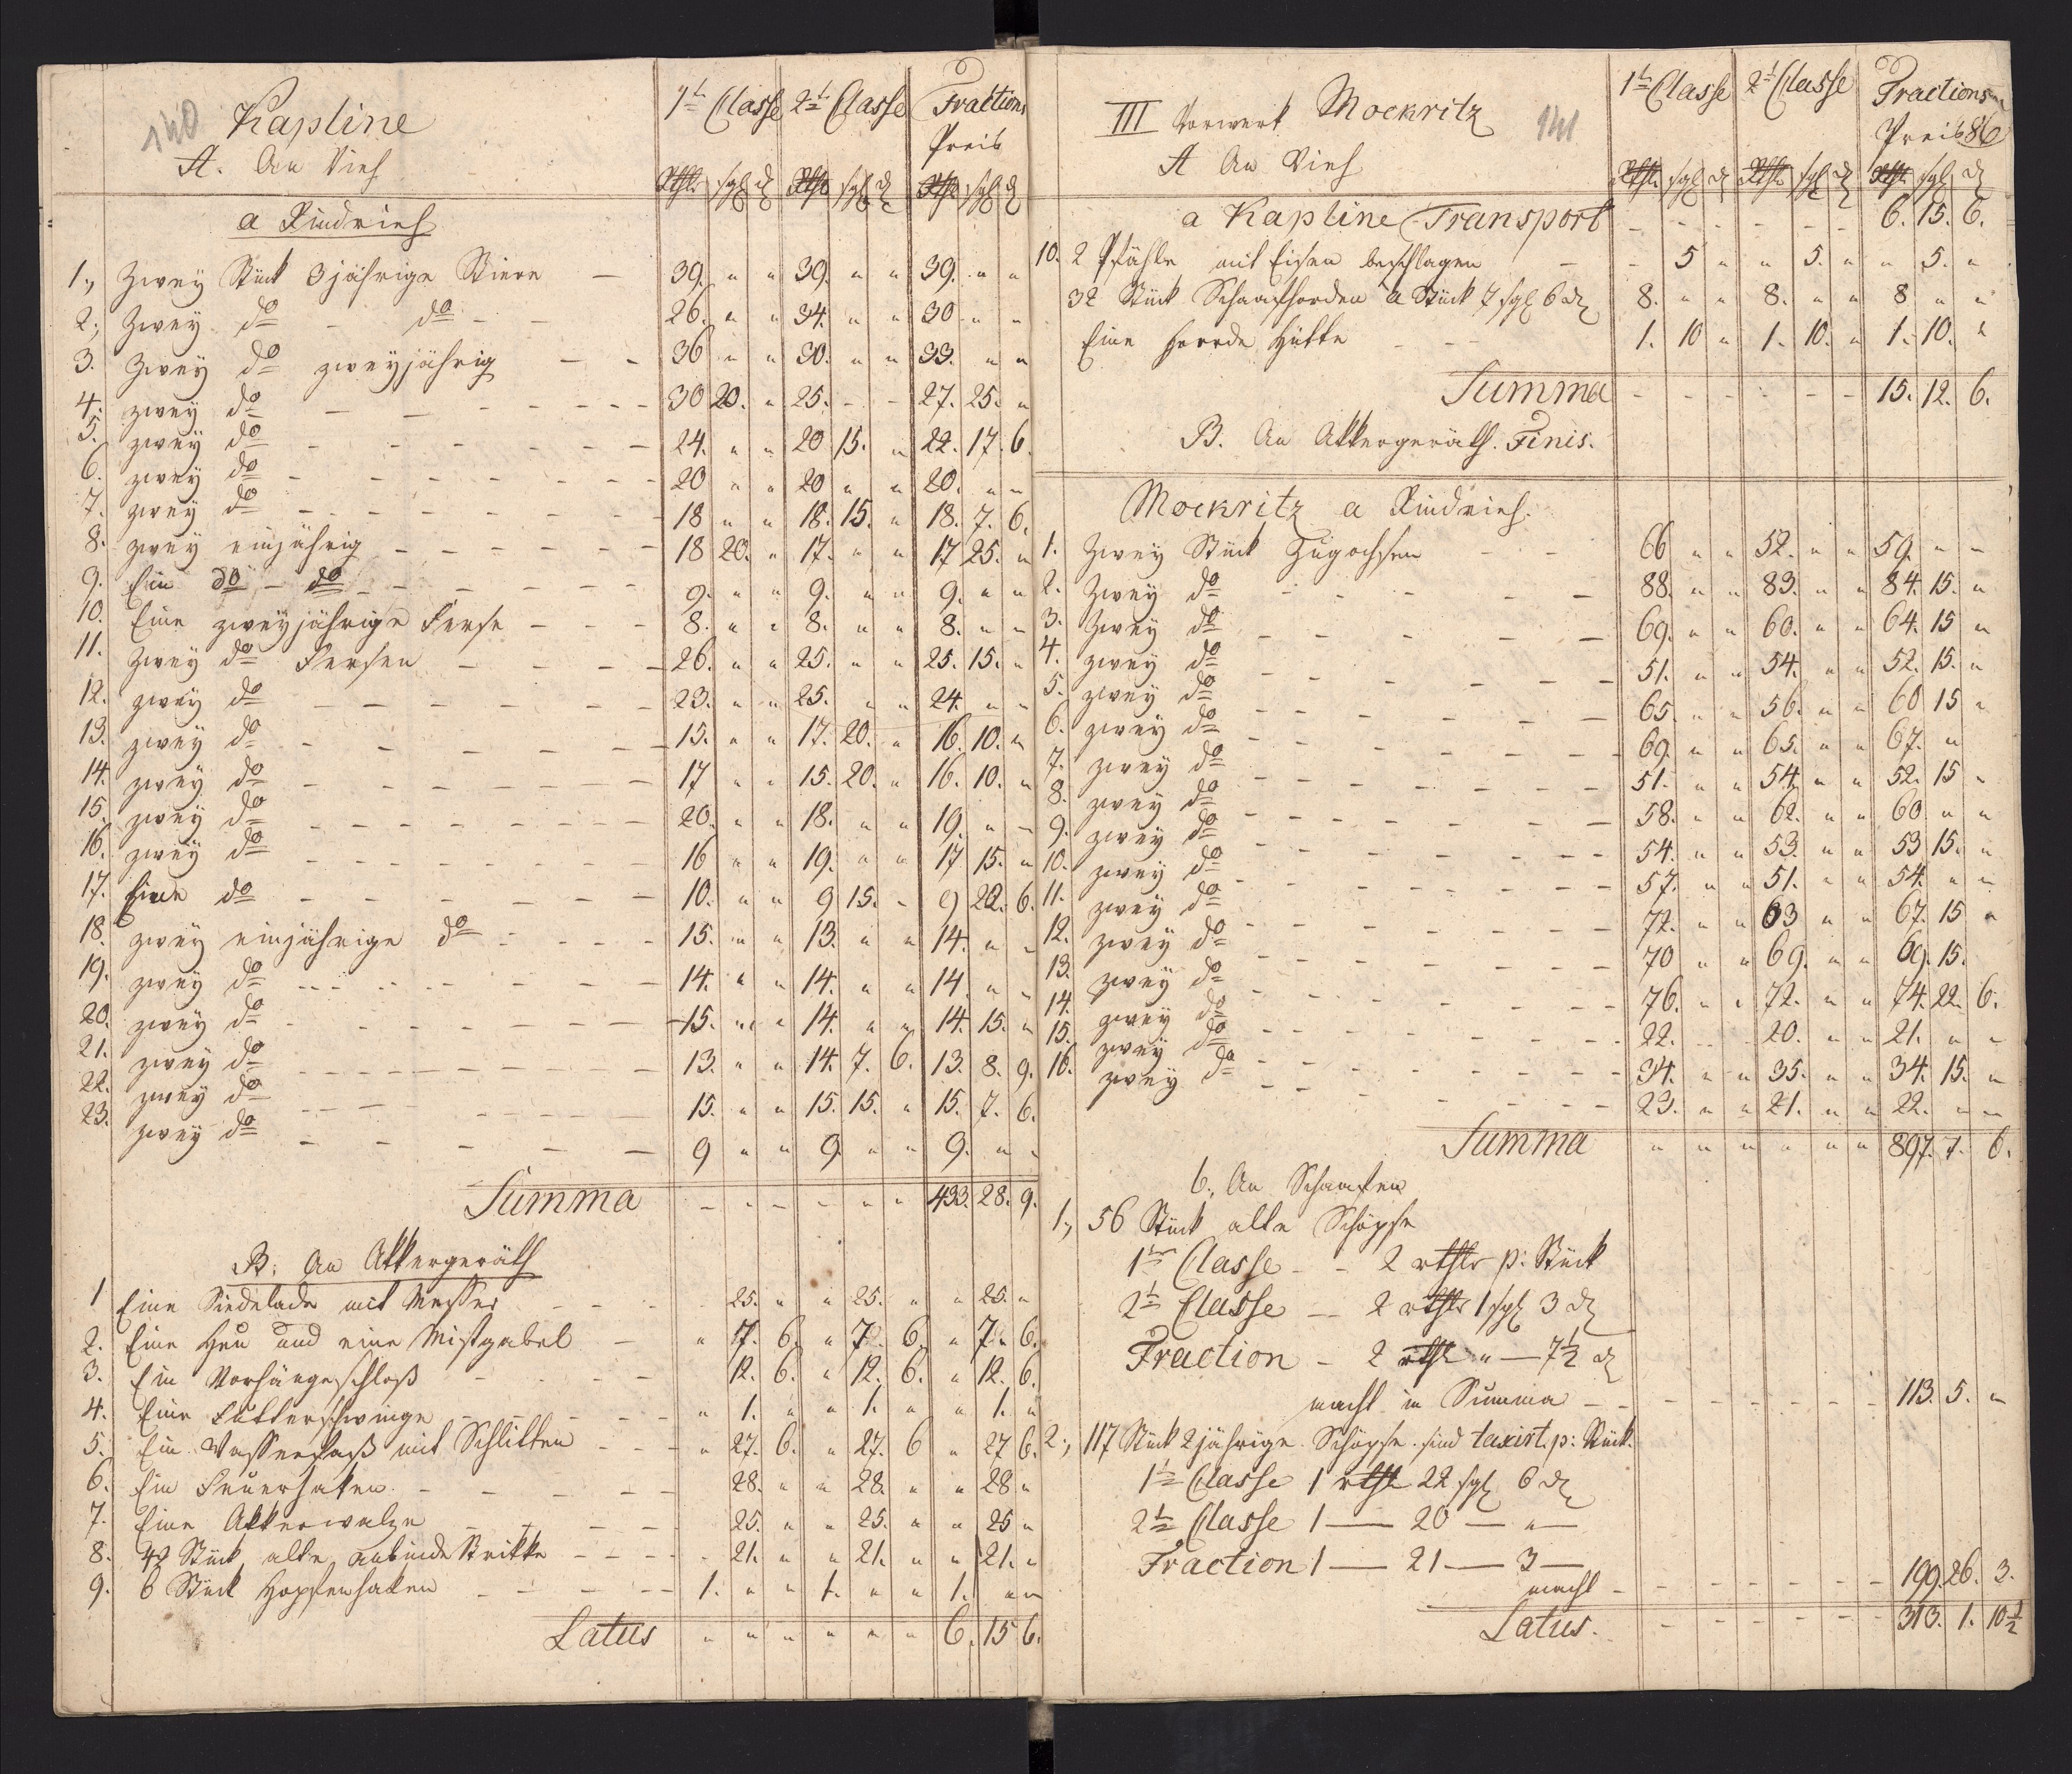 140 Kapline
A. An Vieh
1te Classe 2te Classe Fractions
Preis
Rthlr sgl d Rthlr sgl d Rthlr sgl d
a Rindvieh
1., Zwey Stück 3jährige Stiere — 39. " " 39. " " 39. " "
2., Zwey do - do - - 26. " " 34. " " 30 " "
3. Zwey do zweyjährig - - 36 " " 30. " " 33. " "
4. zwey do - - - 30 20. " 25. - - 27. 25. "
5. zwey do - - - 24. " " 20 15. " 22. 17. 6.
6. zwey do - - - 20 " " 20 " " 20. " "
7. zwey do - - - 18 " " 18. 15. " 18. 7. 6.
8. zwey einjährig - - - 18 20. " 17. " " 17 25. "
9. Ein do - do - - 9. " " 9. " " 9. " "
10. Eine zweyjährige Ferse - - - 8. " " 8. " " 8. " "
11. Zwey do Fersen - - - 26. " " 25. " " 25. 15. "
12. zwey do - - - 23. " " 25. " " 24. " "
13. zwey do - - - 15. " " 17. 20. " 16. 10. "
14. zwey do - - - 17 " " 15. 20. " 16. 10. "
15. zwey do - - - 20. " " 18. " " 19. " "
16. zwey do - - - 16 " " 19. " " 17 15. "
17. Eine do - - - 10. " " 9 15. " 9 22. 6.
18. zwey einjährige do - - - 15. " " 13. " " 14. " "
19. zwey do - - - 14. " " 14. " " 14 " "
20. zwey do - - - 15. " " 14. " " 14. 15. "
21. zwey do - - - 13. " " 14. 7. 6. 13. 8. 9.
22. zwey do - - - 15. " " 15. 15. " 15. 7. 6.
23. zwey do - - - 9 " " 9. " " 9. " "
Summa - - - - - - 433. 28. 9.
B. An Akkergeräth
1 Eine Siedelade mit Messer - - - 25. " " 25. " " 25. "
2. Eine Heu und eine Mistgabel - " 7. 6. " 7. 6. " 7. 6.
3. Ein Vorhängeschloß - - - 12. 6. " 12. 6. " 12. 6.
4. Eine Futterschwinge - - - " 1. " " 1. " " 1. "
5. Ein Wasserfaß mit Schlitten - - - " 27. 6. " 27. 6 " 27 6.
6. Ein Feuerhaken - - - 28. " " 28. " " 28 "
7. Eine Akkerwalze - - - 25. " " 25. " " 25 "
8. 42 Stück alte anbinde Strikke - - - 21. " " 21. " " 21. "
9. 6 Stück Hopfenhaken - - - 1. " " 1. " " 1. " "
Latus " " " " " " 6. 15 6.
III Vorwerk Mockritz 141
A An Vieh
1te Classe 2te Classe Fractions
Preis 86
Rthlr sgl d Rthlr sgl d Rthlr sgl d
a Kapline Transport - - - - - - 6. 15. 6.
10. 2 Pfähle mit Eisen beschlagen - - 5 " " 5. " " 5. "
32 Stück Schaafhorden a Stück 7 sgl 6 d 8. " " 8. " " 8 " "
Eine Horde Hütte - - - 1. 10 " 1. 10. " 1. 10. "
Summa - - - - - - 15. 12. 6.
B. An Akkergeräth. Finis.
Mockritz a Rindvieh.
1. Zwey Stück Zugochsen - - 66 " " 52. " " 59. " "
2. Zwey do - - - 88. " " 83. " " 84. 15. "
3. Zwey do - - - 69. " " 60. " " 64. 15 "
4. zwey do - - - 51. " " 54. " " 52. 15. "
5. zwey do - - - 65. " " 56. " " 60 15 "
6. zwey do - - - 69. " " 65. " " 67. "
7. zwey do - - - 51. " " 54. " " 52. 15 "
8. zwey do - - - 58. " " 62. " " 60 " "
9. zwey do - - - 54. " " 53. " " 53 15. "
10. zwey do - - - 57. " " 51. " " 54. " "
11. zwey do - - - 72. " " 63 " " 67. 15 "
12. zwey do - - - 70 " " 69. " " 69. 15.
13. zwey do - - - 76. " " 72. " " 74. 22. 6.
14. zwey do - - - 22. - - 20. " " 21. " "
15. zwey do - - - 34. " " 35. " " 34. 15. "
16. zwey do - - - 23. " " 21. " " 22. " "
Summa " " " " " " 897. 7. 6.
b., An Schaafen
1., 56 Stück alte Schöpse
1te Classe - - 2 rthlr p: Stück
2te Classe - 2 rthlr 1 sgl 3 d
Fraction - 2 rthlr " — 7½ d
macht in Summa - - - - - - 113. 5. "
2., 117 Stück 2jährige Schöpse sind taxirt p: Stück.
1te Classe 1 rthlr 22 sgl 6 d
2te Classe 1 — 20 — " —
Fraction 1 — 21 — 3 —
macht - - - - - - 199. 26. 3.
Latus. - - - - - - 313. 1. 10½